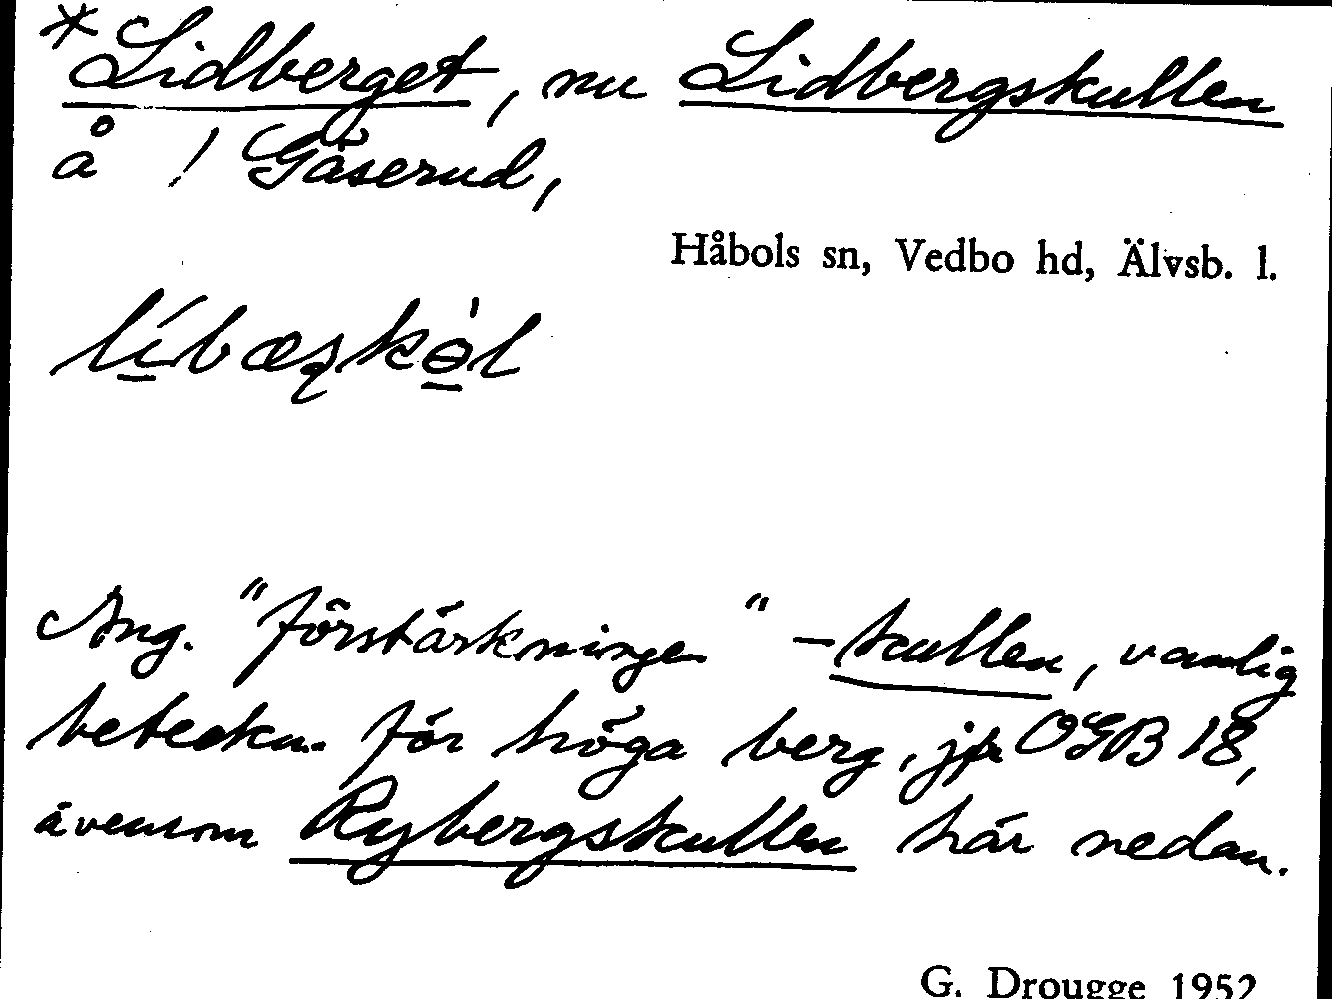 *Lidberget, nu Lidbergskullen
å ! Gäserud,
Håbols sn, Vedbo hd, Älvsb. l.
Ang. "förstärkningen" -kullen, vanlig
beteckn. för höga berg, jfr OGB 18,
ävensom Rybergskullen här nedan.
G. Drougge 1952